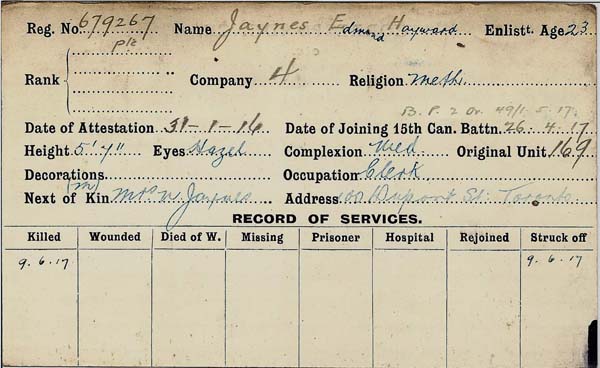 Reg. No. 679267 Name Jaynes Edmund Hayward Enlistt. Age 23
Pte
Rank Company 4 Religion Meth.
B. P. 2 Or. 49/1-5-17.
Date of Attestation 31-1-16 Date of Joining 15th Can. Battn. 26. 4. 17
Height 5' 7" Eyes Hazel Complexion Med Original Unit 169
Decorations (m) Occupation Clerk
Next of Kin Mrs W Jaynes Address Dupont St. Toronto
RECORD OF SERVICES.
Killed Wounded Died of W. Missing Prisoner Hospital Rejoined Struck off
9. 6. 17 9. 6. 17